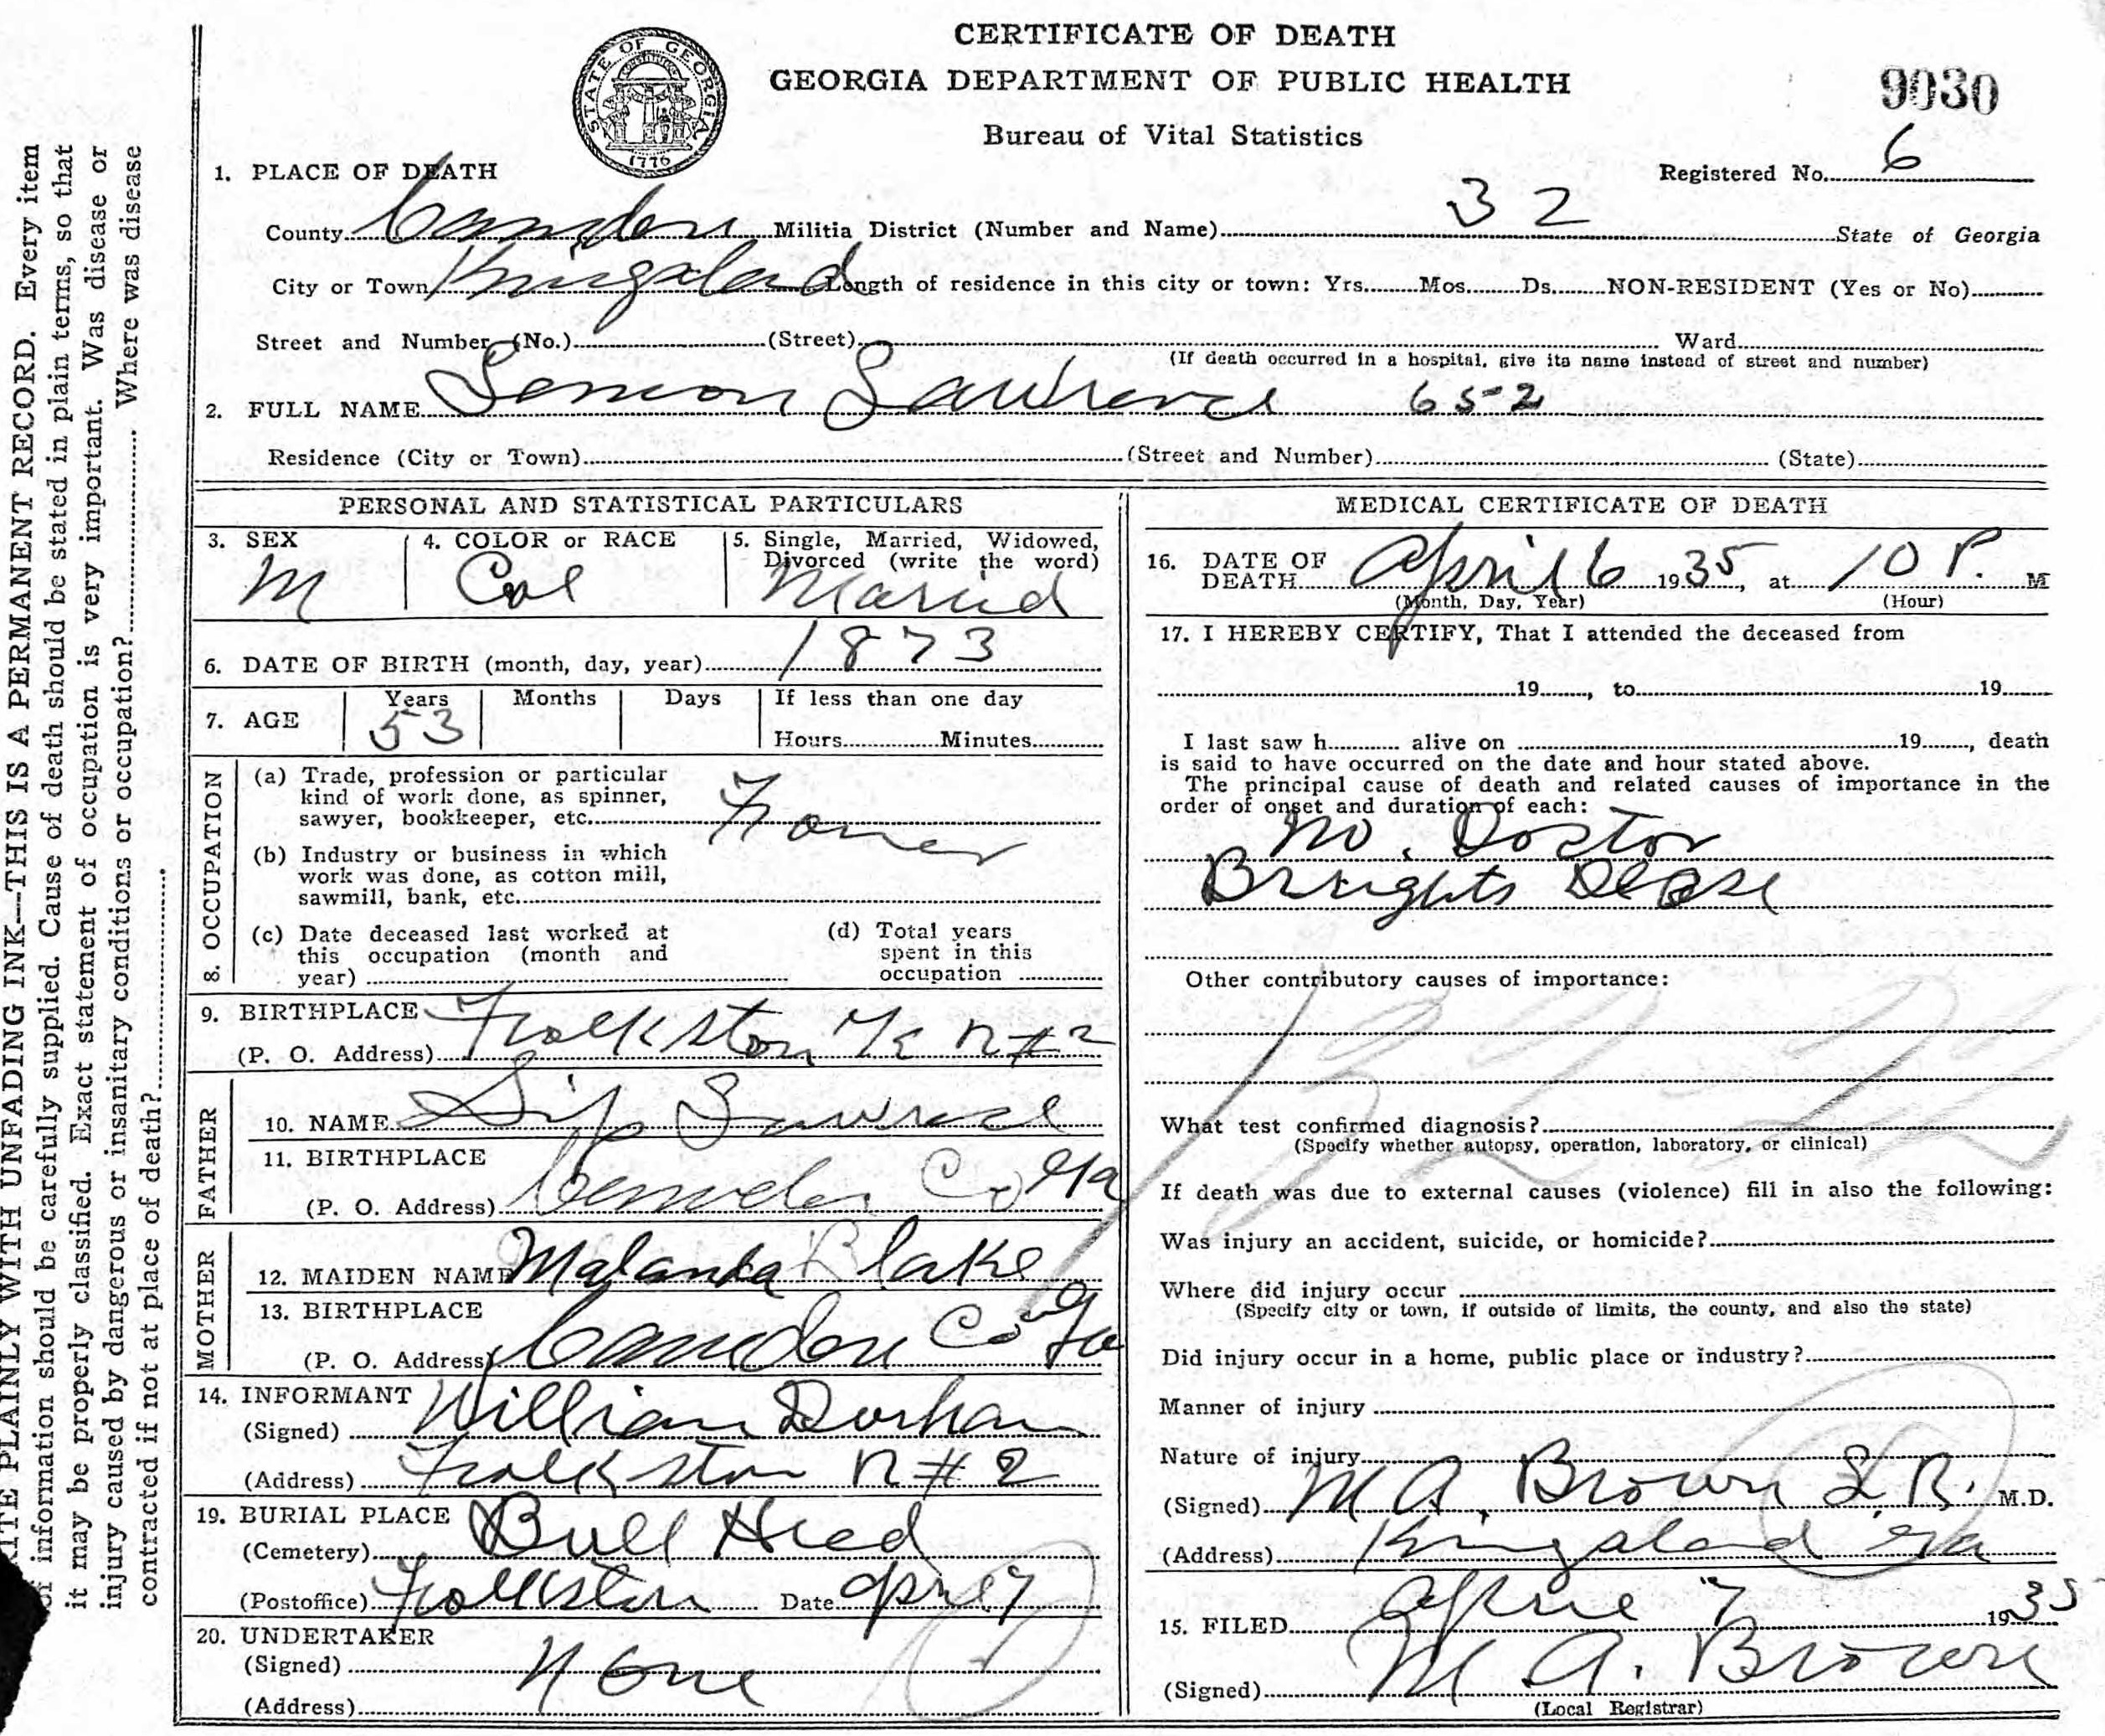 CERTIFICATE OF DEATH
GEORGIA DEPARTMENT OF PUBLIC HEALTH
Bureau of Vital Statistics
STATE OF GEORGIA
CONSTITUTION
1776
9030
Registered No. 6
1. PLACE OF DEATH
County Camden Militia District (Number and Name) 32 State of Georgia
City or Town Kingslad Length of residence in this city or town: Yrs. Mos. Ds. NON-RESIDENT (Yes or No)
Street and Number (No.) (Street) Ward
(If death occurred in a hospital, give its name instead of street and number)
2. FULL NAME Lemon Lawrence 652
Residence (City or Town) (Street and Number) (State)
PERSONAL AND STATISTICAL PARTICULARS
3. SEX M
4. COLOR or RACE Col
5. Single, Married, Widowed, Divorced (write the word) Maried
6. DATE OF BIRTH (month, day, year) 1873
7. AGE Years 53 Months Days If less than one day
Hours Minutes
8. OCCUPATION
(a) Trade, profession or particular
kind of work done, as spinner,
sawyer, bookkeeper, etc.
(b) Industry or business in which
work was done, as cotton mill,
sawmill, bank, etc.
(c) Date deceased last worked at
this occupation (month and
year)
(d) Total years
spent in this
occupation
9. BIRTHPLACE
(P. O. Address) Folkston R#2
FATHER
10. NAME Sip Lawrence
11. BIRTHPLACE
(P. O. Address) Camden Co Ga
MOTHER
12. MAIDEN NAME Malanda Blake
13. BIRTHPLACE
(P. O. Address) Camden Co Ga
14. INFORMANT
(Signed) William Durham
(Address) Folkston R#2
19. BURIAL PLACE
(Cemetery) Bull Hed
(Postoffice) Folkston Date Apr 7
20. UNDERTAKER
(Signed) None
(Address)
MEDICAL CERTIFICATE OF DEATH
16. DATE OF
DEATH April 6 1935, at 10 P. M
(Month, Day, Year) (Hour)
17. I HEREBY CERTIFY, That I attended the deceased from
19, to 19
I last saw h alive on 19, death
is said to have occurred on the date and hour stated above.
The principal cause of death and related causes of importance in the
order of onset and duration of each:
No. Doctor
Brights
Other contributory causes of importance:
What test confirmed diagnosis?
(Specify whether autopsy, operation, laboratory, or clinical)
If death was due to external causes (violence) fill in also the following:
Was injury an accident, suicide, or homicide?
Where did injury occur
(Specify city or town, if outside of limits, the county, and also the state)
Did injury occur in a home, public place or industry?
Manner of injury
Nature of injury
(Signed) M A. Brown L. R. M.D.
(Address) Kingsland Ga
15. FILED 7 1935
(Signed) M A. Brown
(Local Registrar)
WRITE PLAINLY WITH UNFADING INK—THIS IS A PERMANENT RECORD. Every item
of information should be carefully supplied. Cause of death should be stated in plain terms, so that
it may be properly classified. Exact statement of occupation is very important. Was disease or
injury caused by dangerous or insanitary conditions or occupation? Where was disease
contracted if not at place of death?